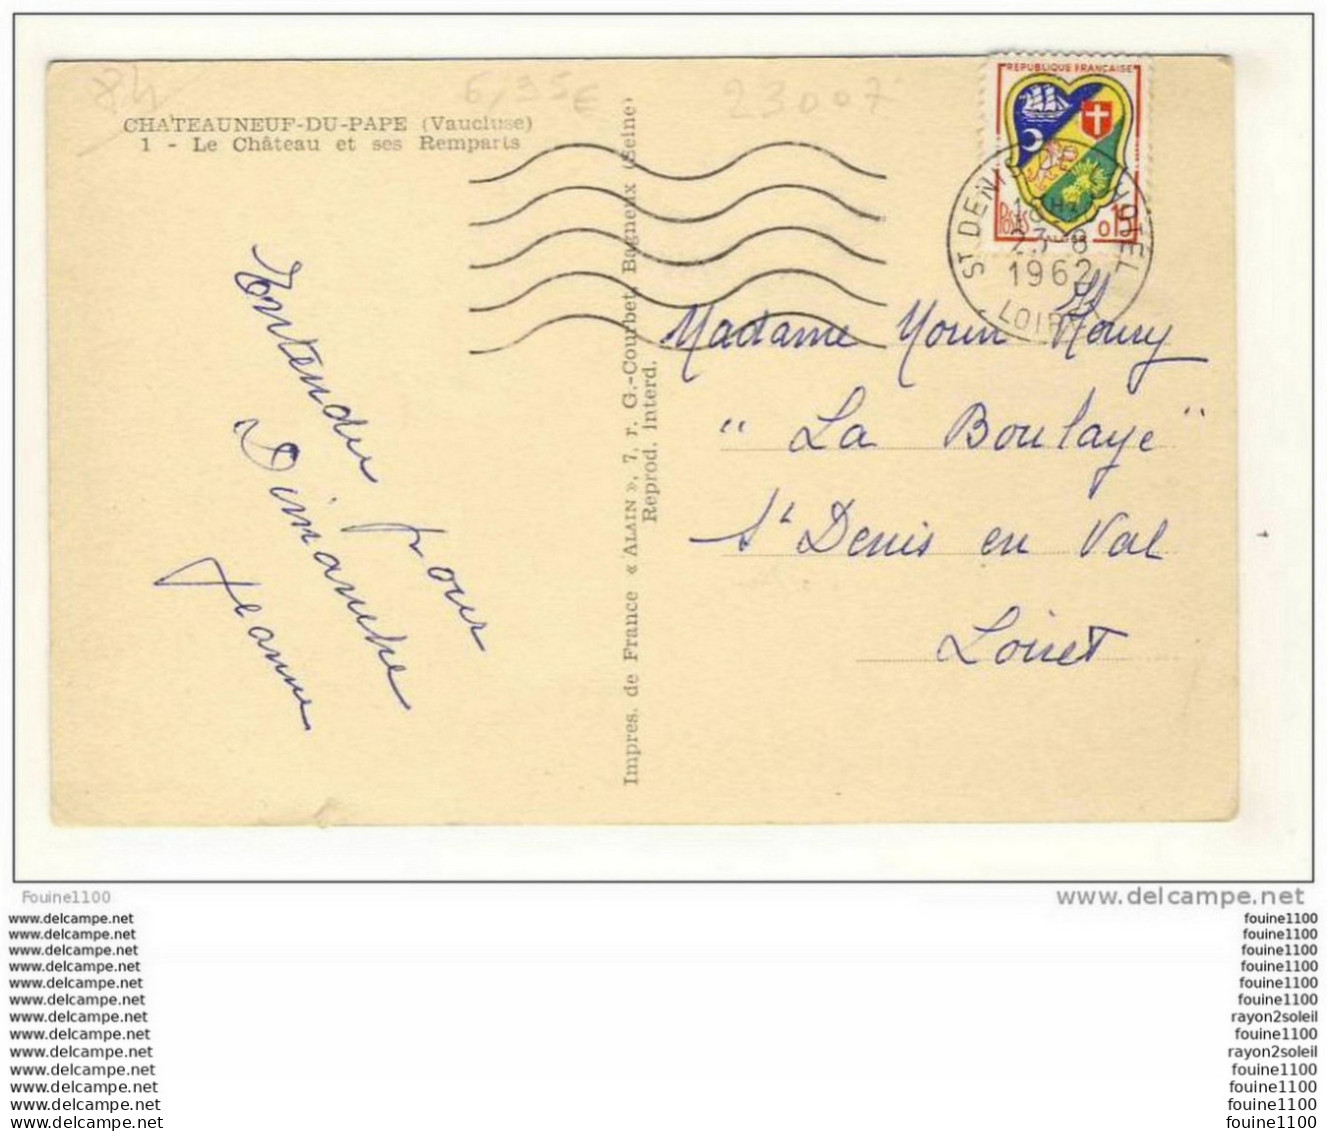 84
6,35€
23007
CHATEAUNEUF-DU-PAPE (Vaucluse)
1 - Le Château et ses Remparts
REPUBLIQUE FRANÇAISE
Postes 0,15
ST DENIS HOTEL
18H
23-8
1962
LOIRET
Entendu pour
Dimanche
Jeanne
Impres. de France « ALAIN », 7, r. G.-Courbet, Bagneux (Seine)
Reprod. interd.
Madame
"La Boulaye"
St Denis en Val
Loiret
Fouine1100
www.delcampe.net
www.delcampe.net
www.delcampe.net
www.delcampe.net
www.delcampe.net
www.delcampe.net
www.delcampe.net
www.delcampe.net
www.delcampe.net
www.delcampe.net
www.delcampe.net
www.delcampe.net
www.delcampe.net
www.delcampe.net
fouine1100
fouine1100
fouine1100
fouine1100
fouine1100
fouine1100
rayon2soleil
fouine1100
rayon2soleil
fouine1100
fouine1100
fouine1100
fouine1100